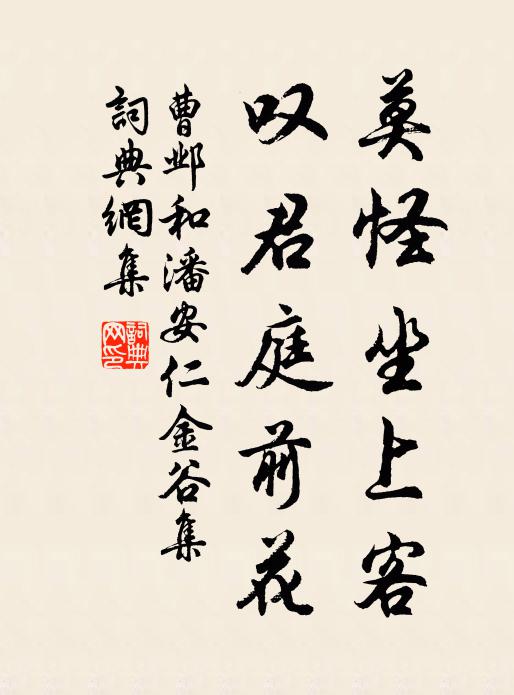 莫怪坐上客
叹君庭前花
曹邺和潘安仁金谷集
詞典網集
詞典網印